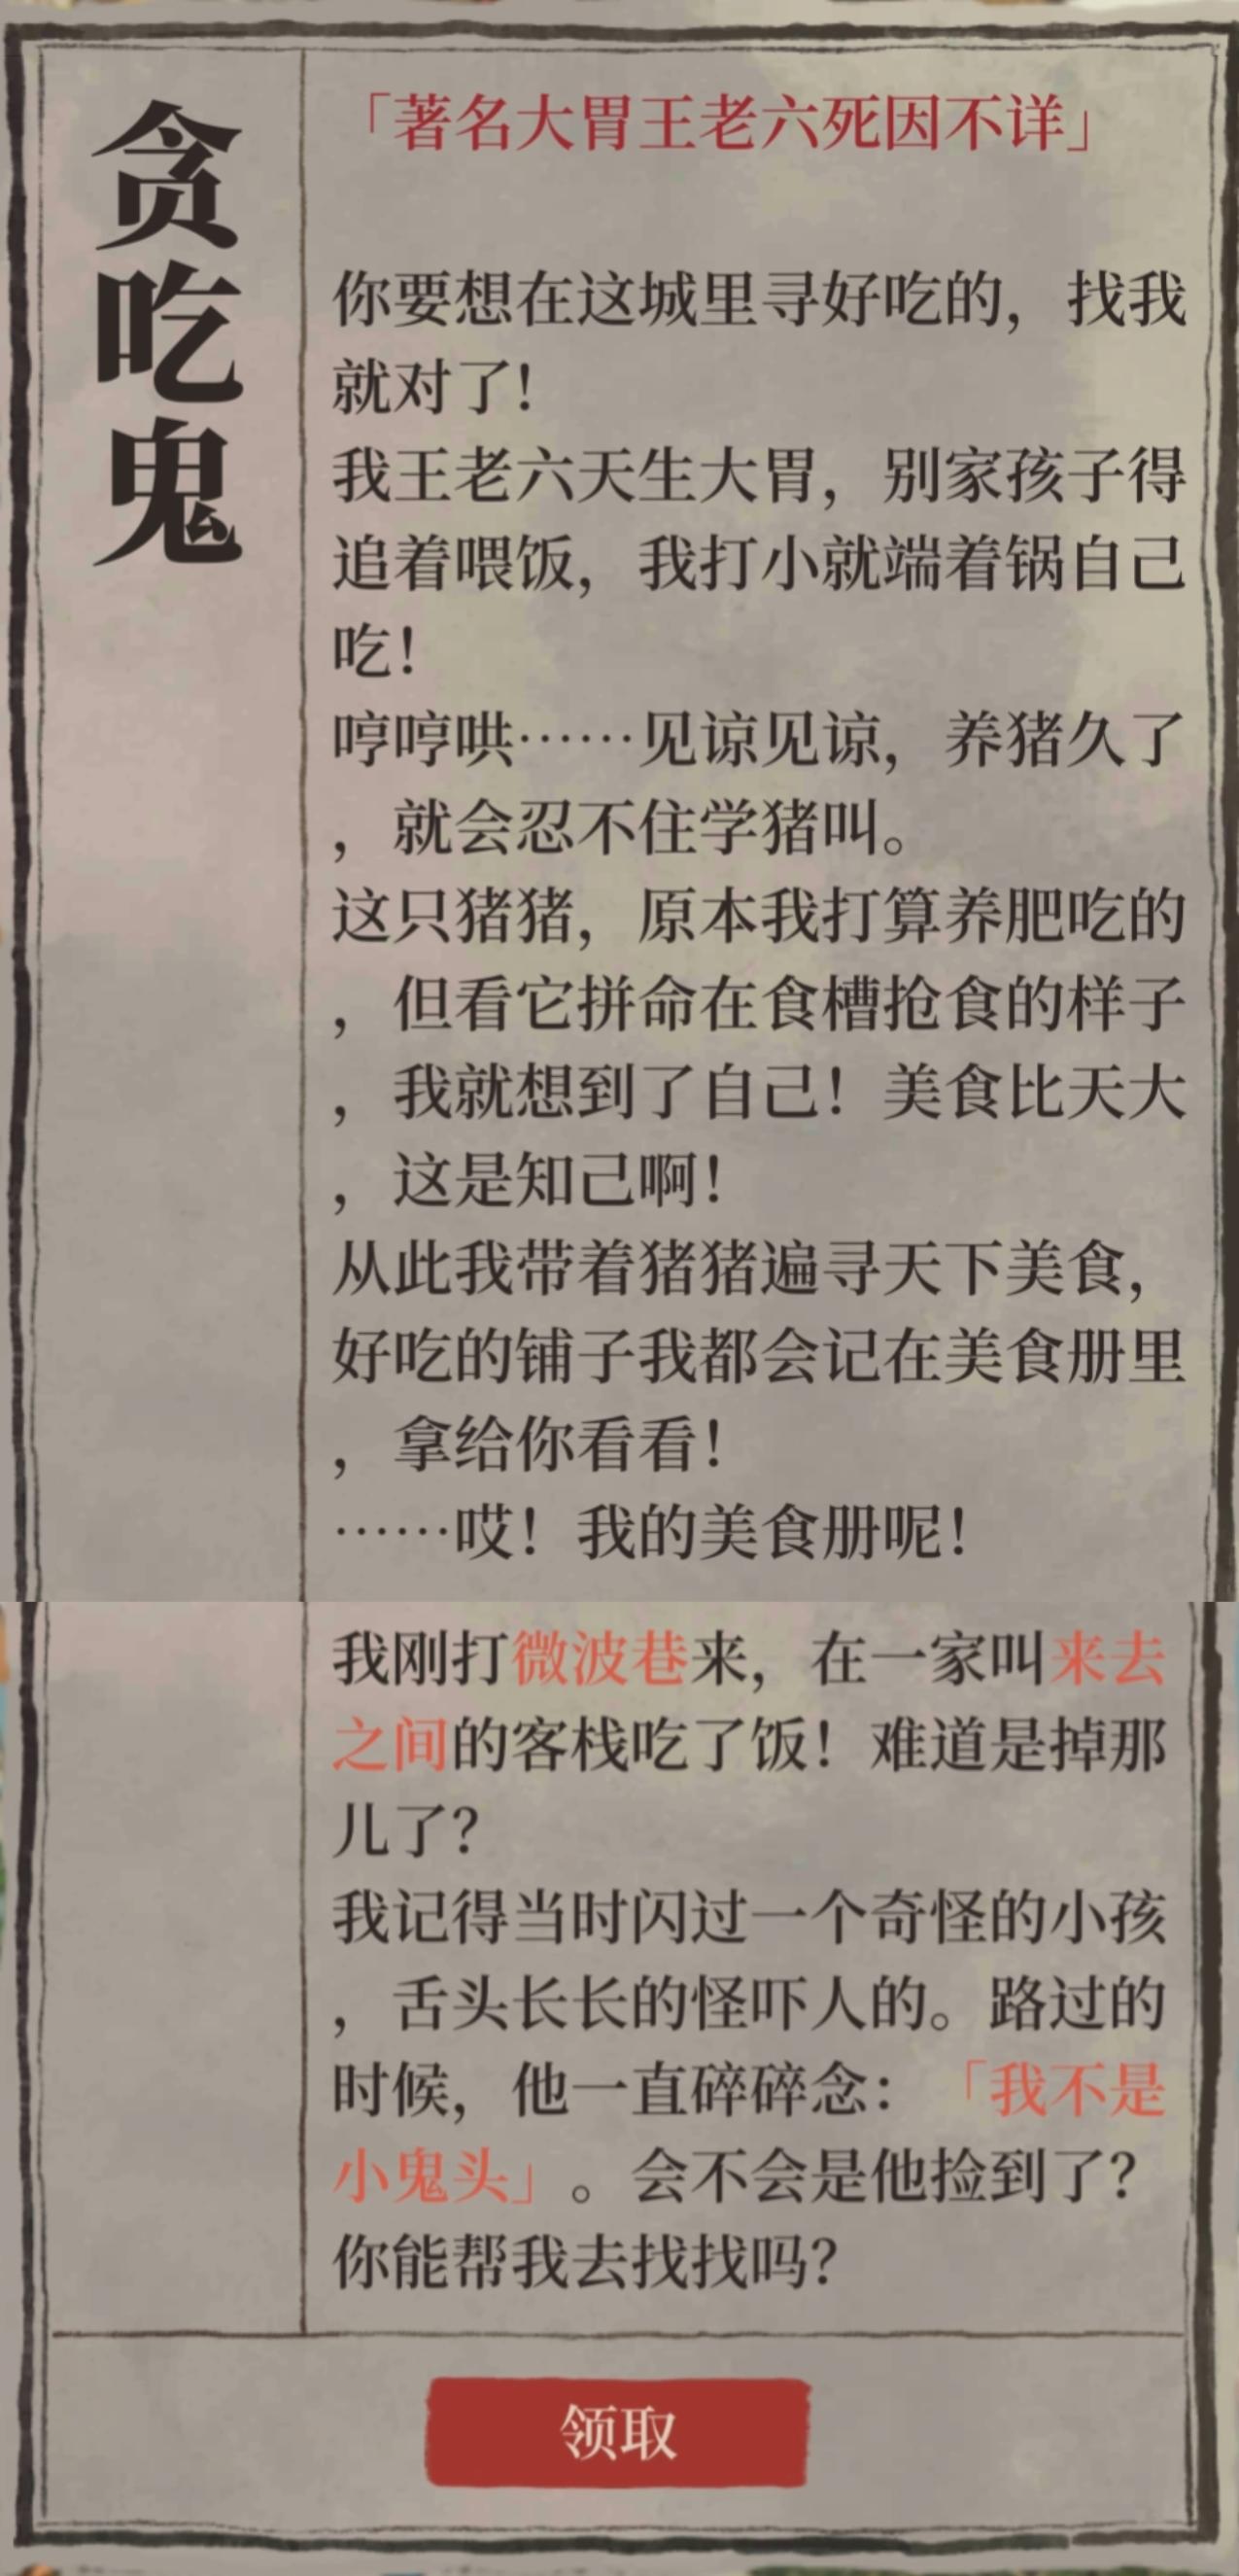 贪吃鬼
「著名大胃王老六死因不详」
你要想在这城里寻好吃的，找我
就对了！
我王老六天生大胃，别家孩子得
追着喂饭，我打小就端着锅自己
吃！
哼哼哄……见谅见谅，养猪久了
，就会忍不住学猪叫。
这只猪猪，原本我打算养肥吃的
，但看它拼命在食槽抢食的样子
，我就想到了自己！美食比天大
，这是知己啊！
从此我带着猪猪遍寻天下美食，
好吃的铺子我都会记在美食册里
，拿给你看看！
……哎！我的美食册呢！
我刚打微波巷来，在一家叫来去
之间的客栈吃了饭！难道是掉那
儿了？
我记得当时闪过一个奇怪的小孩
，舌头长长的怪吓人的。路过的
时候，他一直碎碎念：「我不是
小鬼头」。会不会是他捡到了？
你能帮我去找找吗？
领取